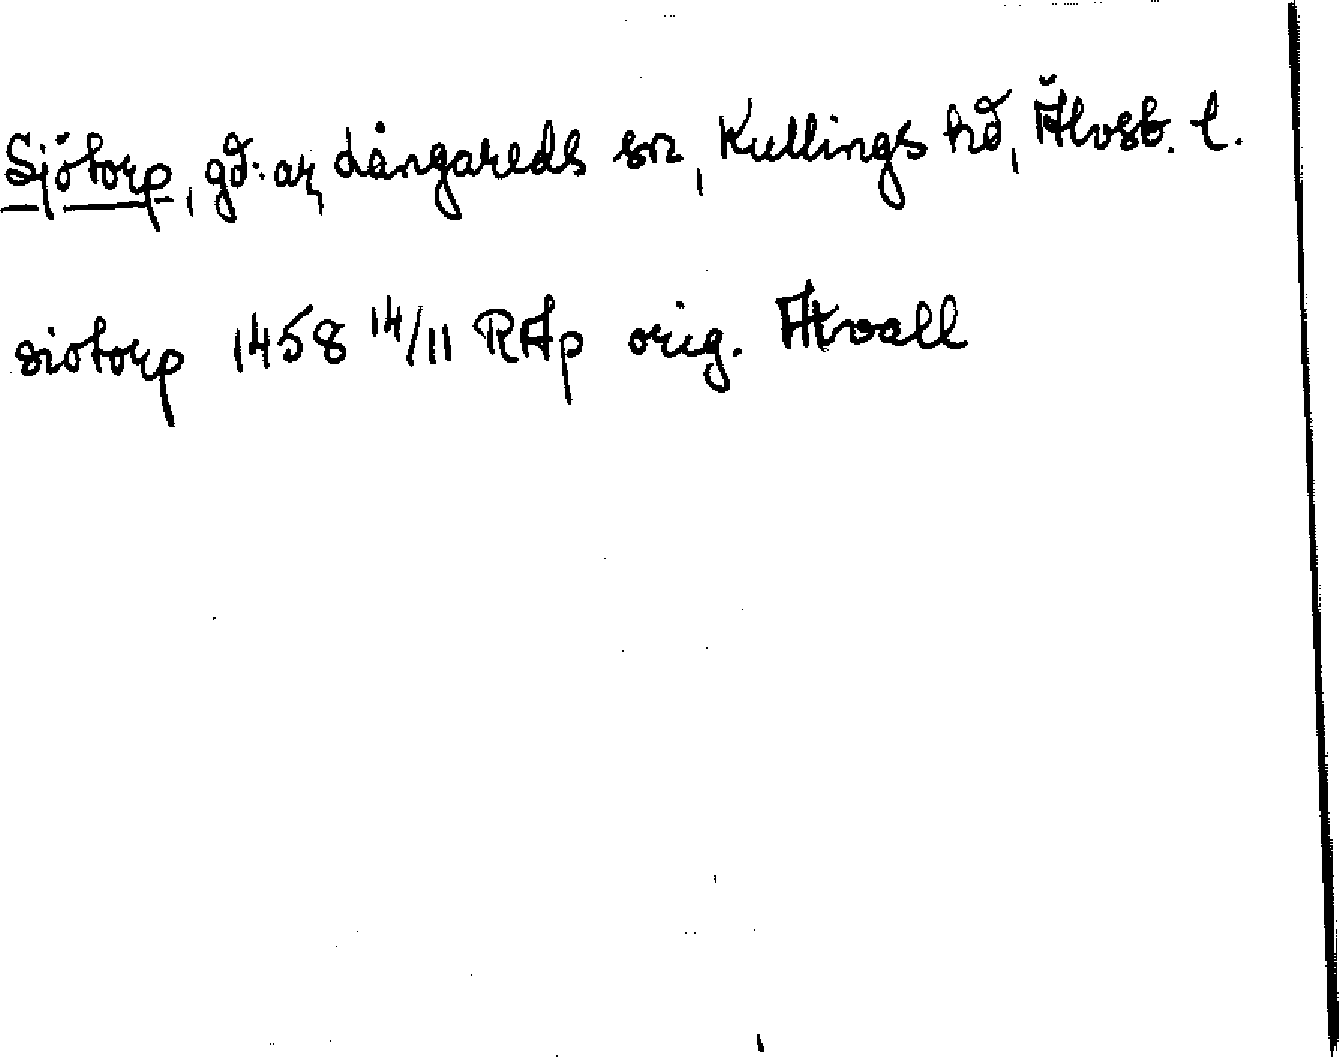 Sjötorp, gd:ar, Långareds sn, Kullings hd, Älvsb. l.
siotorp 1458 14/11 RAp orig. Atvall